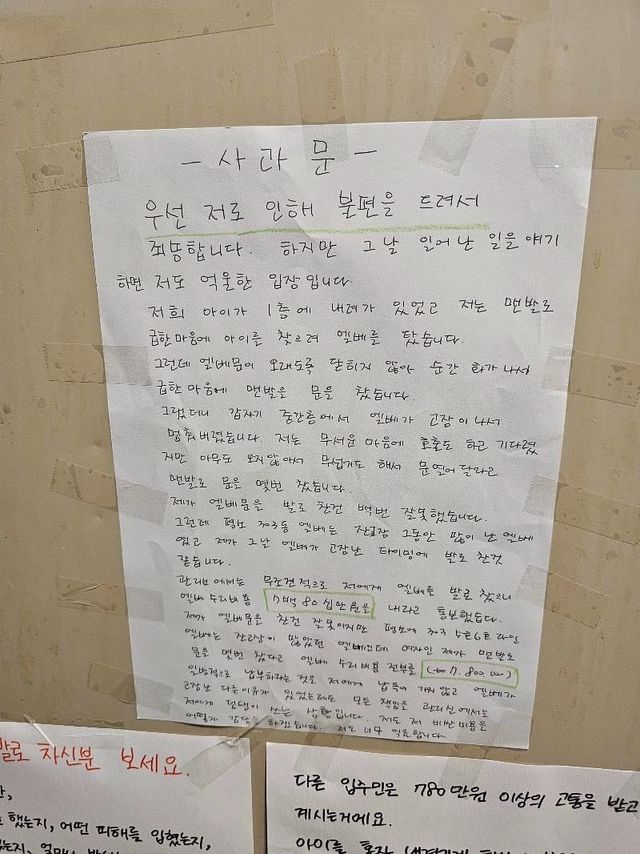 - 사 과 문 -
우선 저로 인해 불편을 드려서
죄송합니다. 하지만 그날 일어난 일을 얘기
하면 저도 억울한 입장입니다.
저희 아이가 1층에 내려가 있었고 저는 맨발로
급한마음에 아이를 찾으려 엘베를 탔습니다.
그런데 엘베문이 오래도록 닫히지 않아 순간 화가 나서
급한 마음에 맨발로 문을 찼습니다.
그랬더니 갑자기 중간층에서 엘베가 고장이 나서
멈춰버렸습니다. 저는 무서운 마음에 호출도 하고 기다렸
지만 아무도 오지않아서 무섭기도 해서 문열어달라고
맨발로 문을 몇번 찼습니다.
제가 엘베문을 발로 찬건 백번 잘못했습니다.
그런데 평소 303동 엘베는 잔고장 그동안 많이 난 엘베
였고 제가 그날 엘베가 고장난 타이밍에 발로 찬것
같습니다.
관리소에서는 무조건적으로 저에게 엘베를 발로 찼으니
엘베 수리비용 7백 80 십만원을 내라고 통보했습니다.
제가 엘베문을 찬건 잘못이지만 평소에 303 5호6호 라인
엘베는 잔고장이 많았던 엘베인데 여자인 제가 맨발로
문을 몇번 찼다고 엘베 수리비용 전부를 (₩ 7.800.000)
일방적으로 납부하라는 것은 저에게 납득이 가지 않고 엘베가
고장난 다른이유가 있었는데도 모든 책임을 관리실에서도
저에게 덤탱이 쓰는 상황입니다. 저도 저 비싼비용을
어떻게 감당을 하겠습니까. 저도 너무 억울합니다.
발로 차신분 보세요.
다른 입주민은 780만원 이상의 고통을 받고
했는지, 어떤 피해를 입혔는지,
계시는거에요.
아이를 혼자